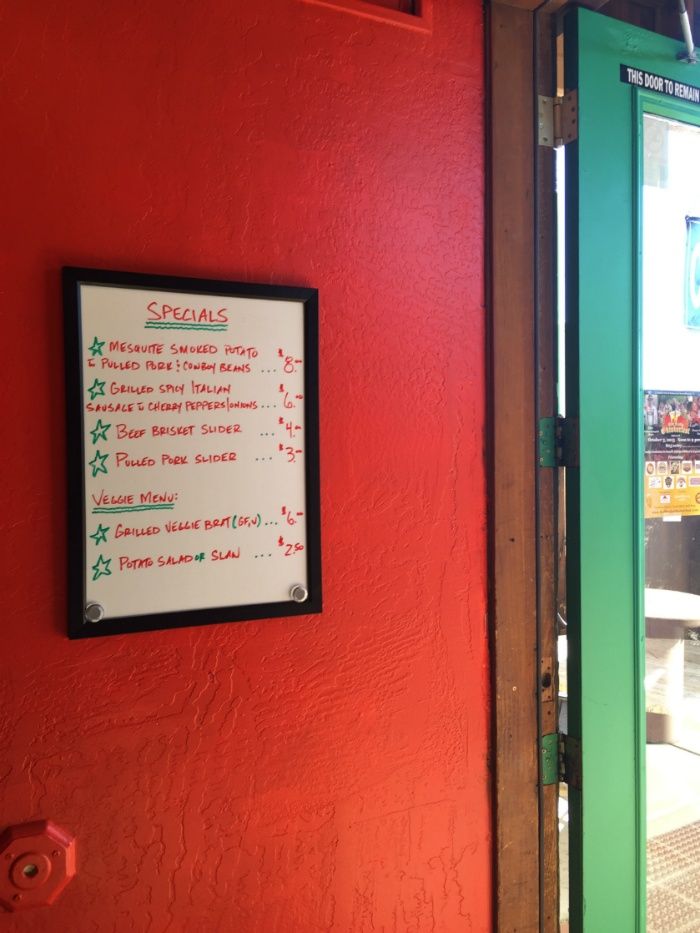 SPECIALS
MESQUITE SMOKED POTATO
c̄ PULLED PORK & COWBOY BEANS ... $8.00
GRILLED SPICY ITALIAN
SAUSAGE c̄ CHERRY PEPPERS/ONIONS ... $6.00
BEEF BRISKET SLIDER ... $4.00
PULLED PORK SLIDER ... $3.00
VEGGIE MENU:
GRILLED VEGGIE BRAT (GF,V) ... $6.00
POTATO SALAD OR SLAW ... $2.50
THIS DOOR TO REMAIN